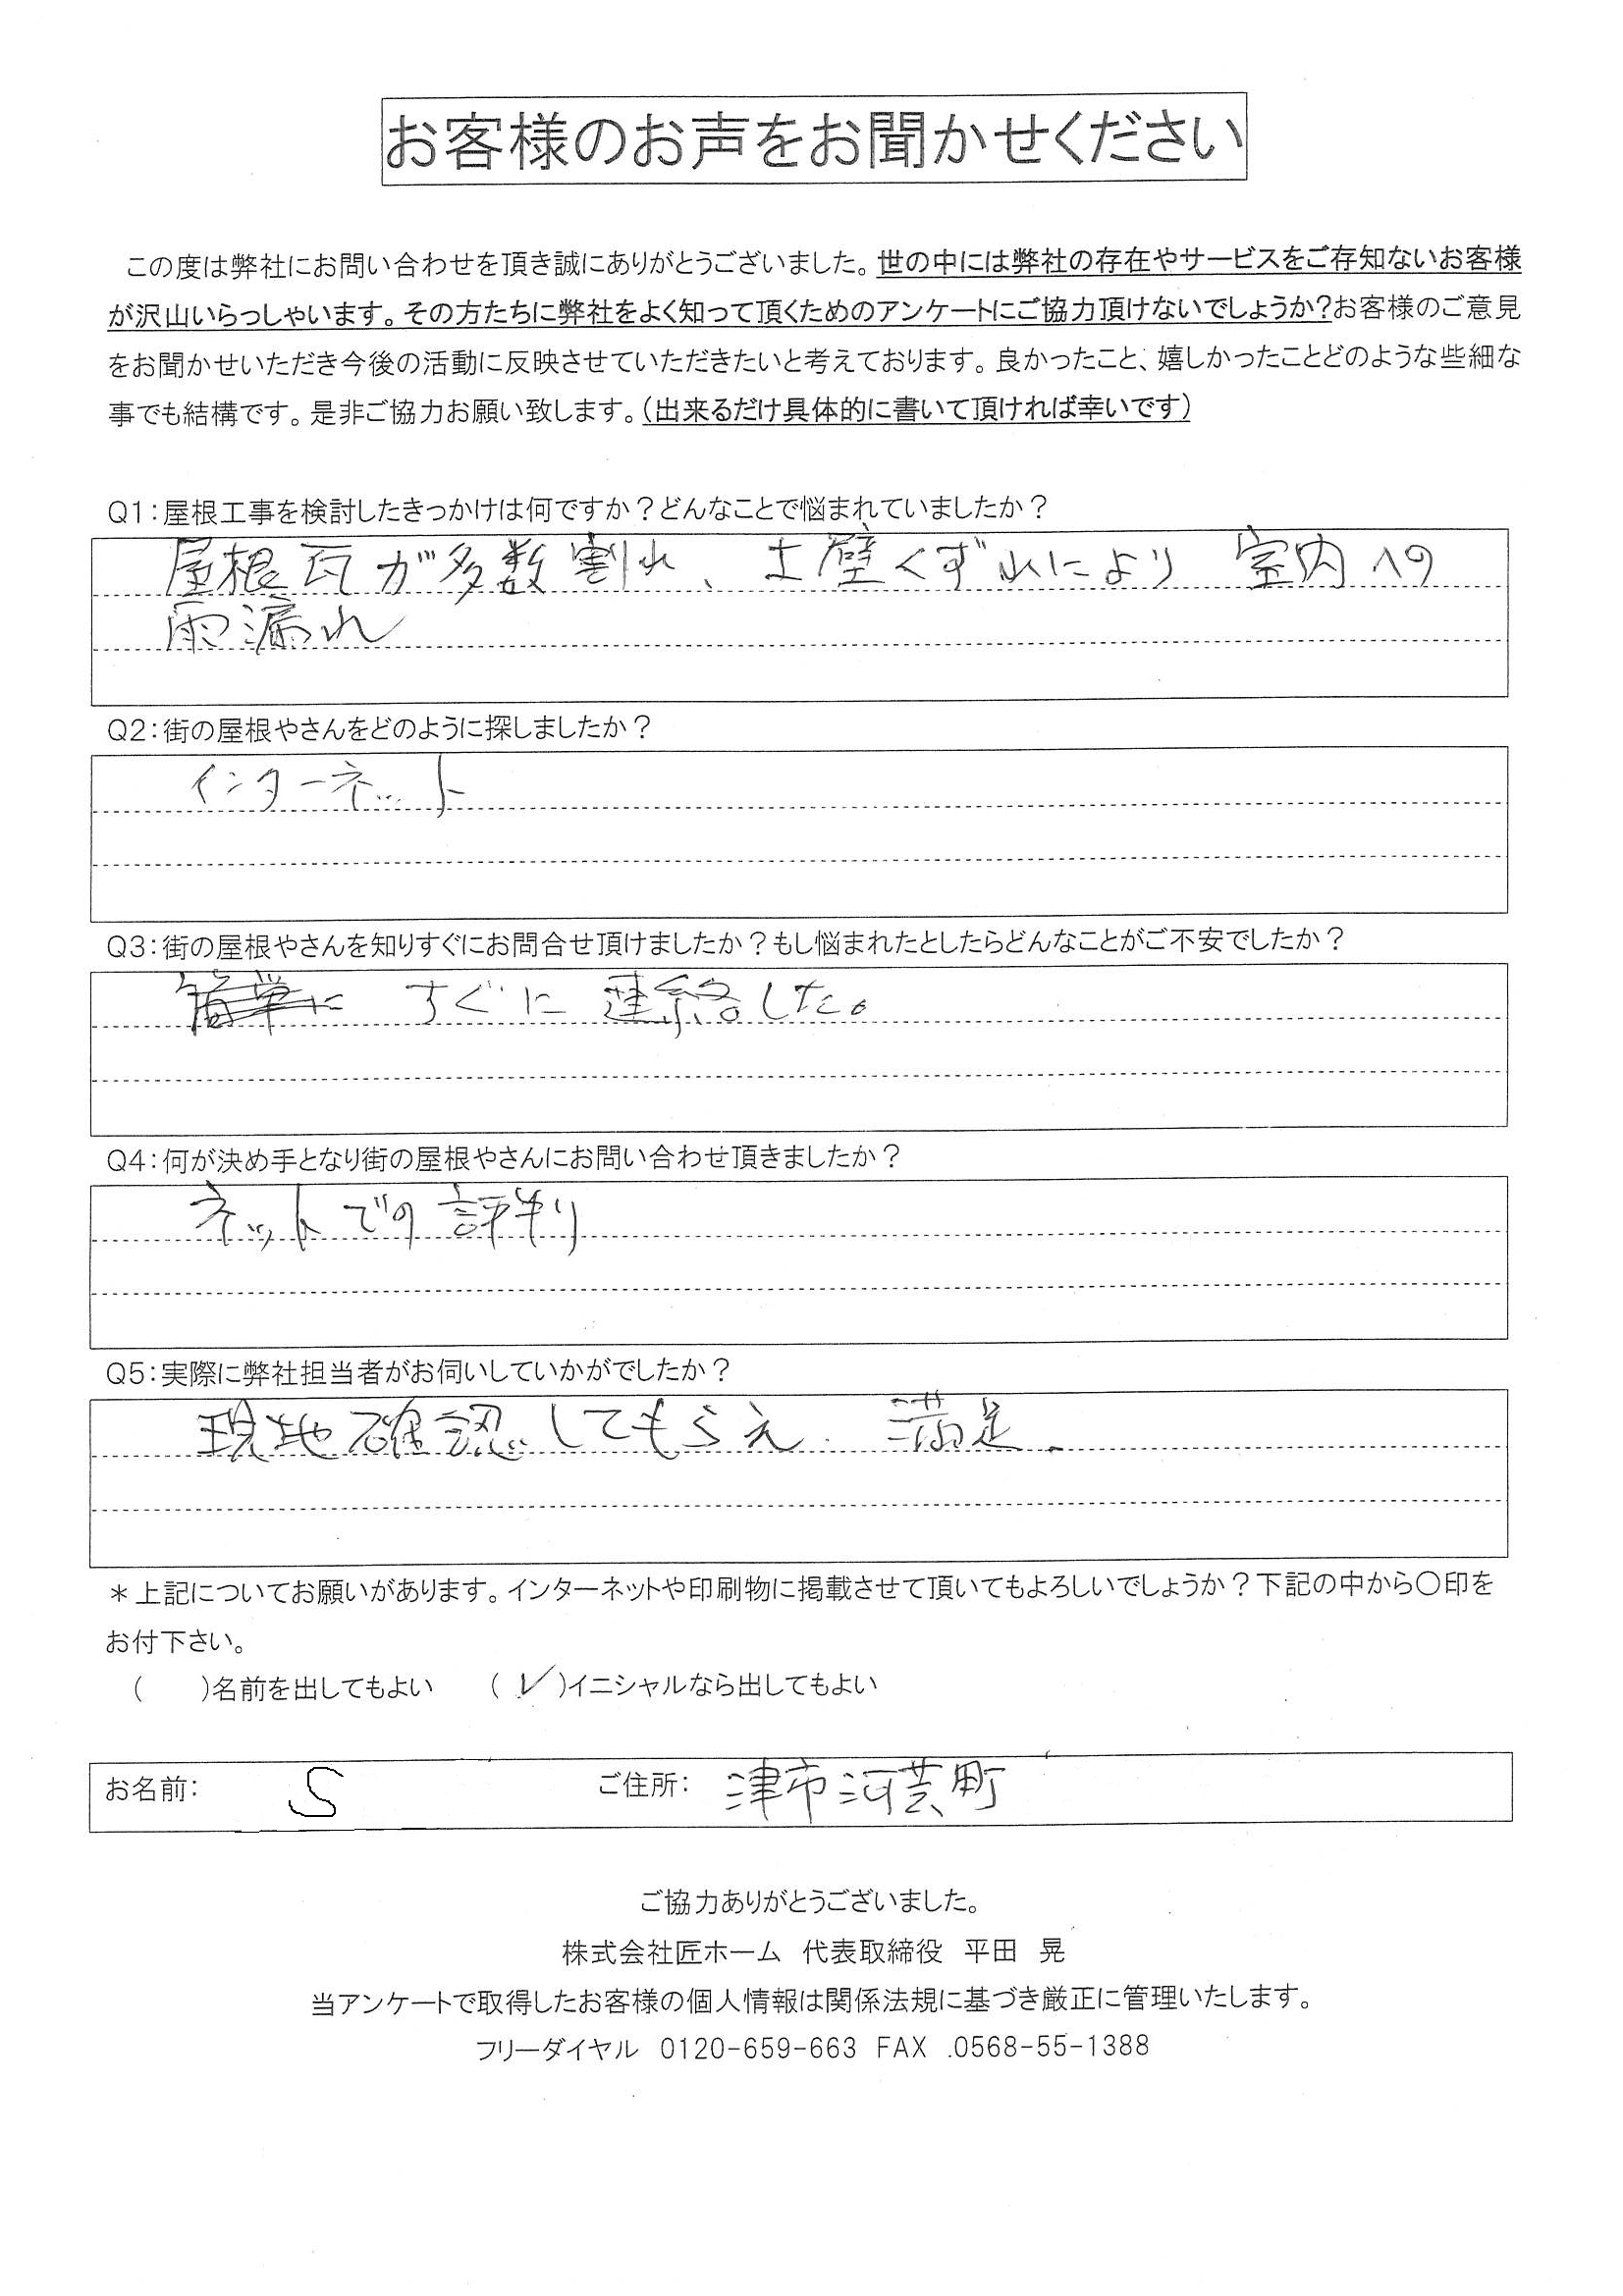 お客様のお声をお聞かせください
この度は弊社にお問い合わせを頂き誠にありがとうございました。世の中には弊社の存在やサービスをご存知ないお客様
が沢山いらっしゃいます。その方たちに弊社をよく知って頂くためのアンケートにご協力頂けないでしょうか?お客様のご意見
をお聞かせいただき今後の活動に反映させていただきたいと考えております。良かったこと、嬉しかったことどのような些細な
事でも結構です。是非ご協力お願い致します。(出来るだけ具体的に書いて頂ければ幸いです)
Q1:屋根工事を検討したきっかけは何ですか?どんなことで悩まれていましたか?
屋根瓦が多数割れ、土壁くずれにより 室内への
雨漏れ
Q2:街の屋根やさんをどのように探しましたか?
インターネット
Q3:街の屋根やさんを知りすぐにお問合せ頂けましたか?もし悩まれたとしたらどんなことがご不安でしたか?
すぐに 連絡した。
Q4:何が決め手となり街の屋根やさんにお問い合わせ頂きましたか?
ネットでの評判
Q5:実際に弊社担当者がお伺いしていかがでしたか?
現地確認してもらえ、満足.
*上記についてお願いがあります。インターネットや印刷物に掲載させて頂いてもよろしいでしょうか?下記の中から〇印を
お付下さい。
(　　)名前を出してもよい　(✓)イニシャルなら出してもよい
お名前: S ご住所: 津市河芸町
ご協力ありがとうございました。
株式会社匠ホーム 代表取締役 平田 晃
当アンケートで取得したお客様の個人情報は関係法規に基づき厳正に管理いたします。
フリーダイヤル 0120-659-663 FAX .0568-55-1388